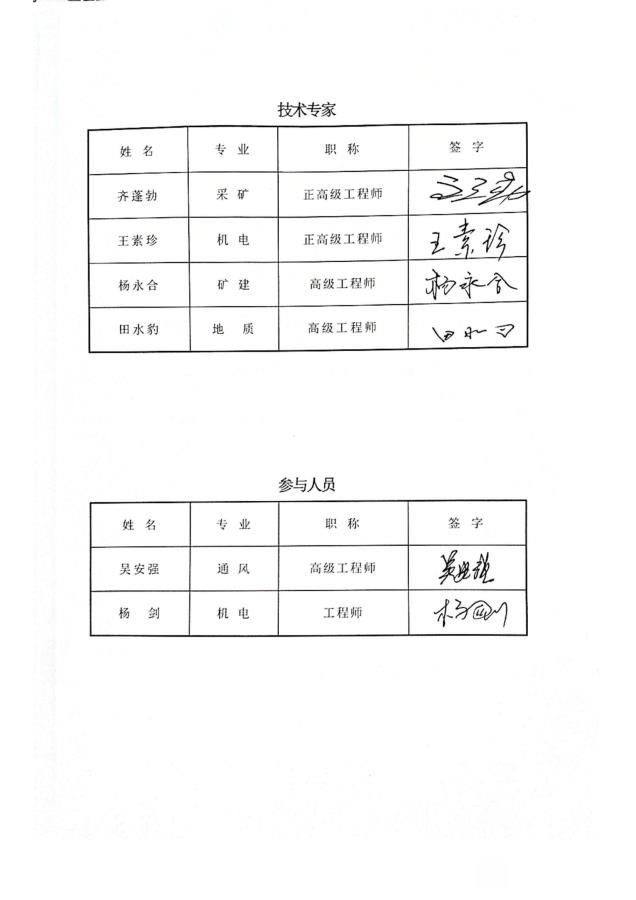 技术专家
姓 名 专 业 职 称 签 字
齐蓬勃 采 矿 正高级工程师
王素珍 机 电 正高级工程师 王素珍
杨永合 矿 建 高级工程师 杨永合
田水豹 地 质 高级工程师
参与人员
姓 名 专 业 职 称 签 字
吴安强 通 风 高级工程师
杨 剑 机 电 工程师